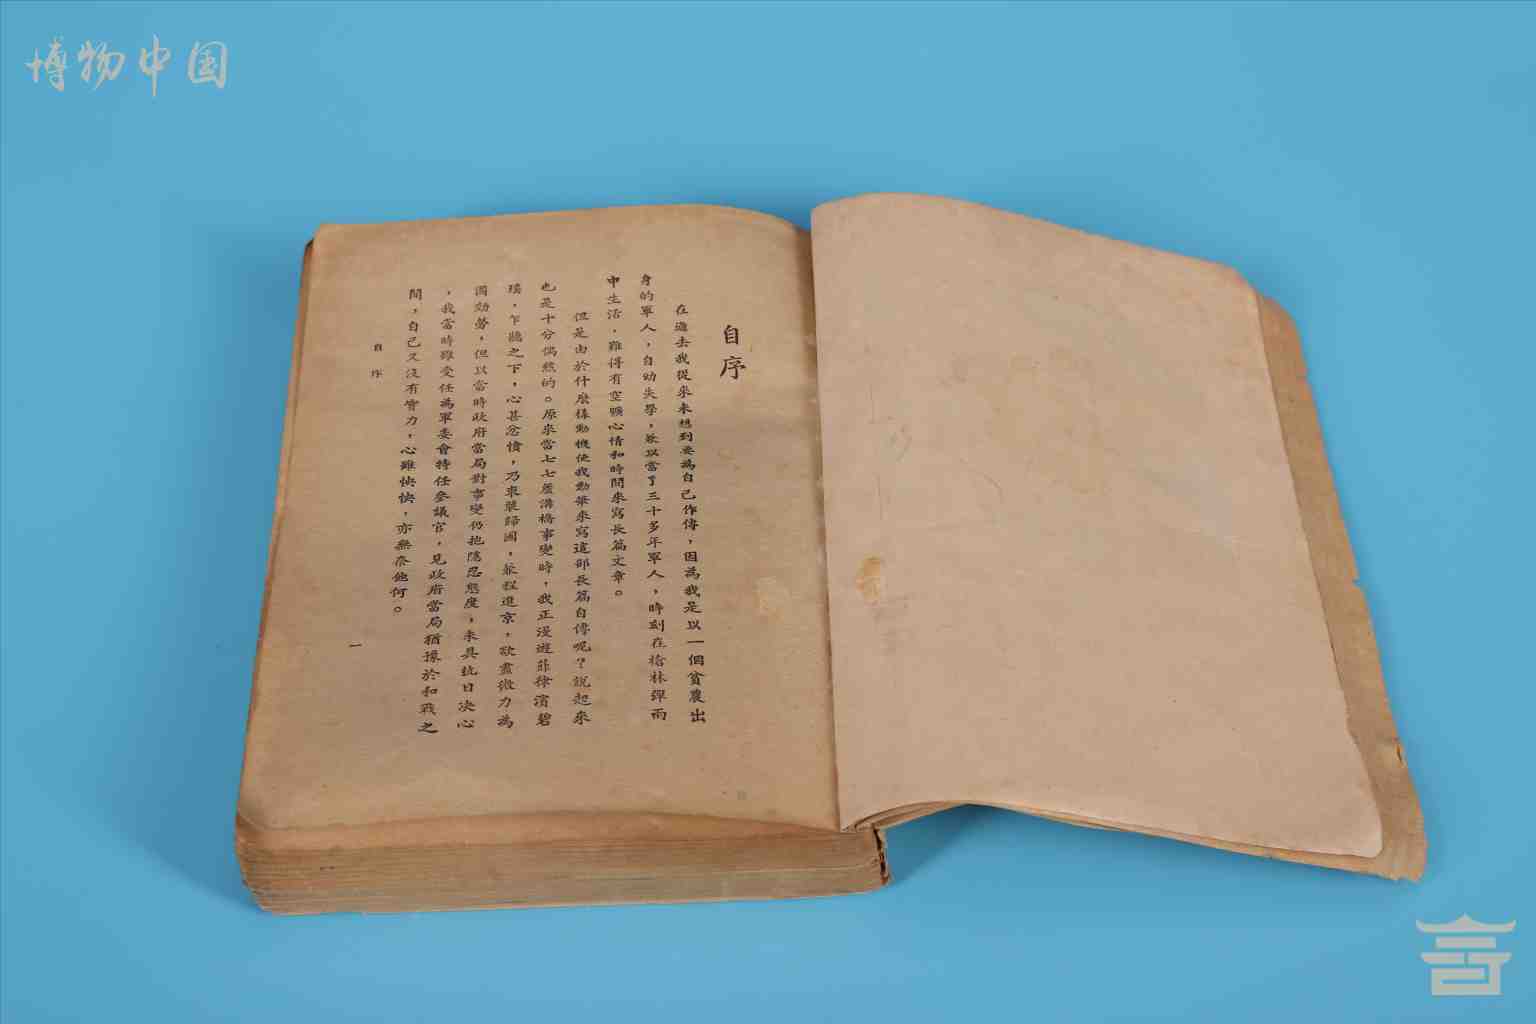 博物中国
自序
在過去我從來未想到要為自己作傳，因為我是以一個貧農出
身的軍人，自幼失學，兼以當了三十多年軍人，時刻在槍林彈雨
中生活，難得有空曠心情和時間來寫長篇文章。
但是由於什麼樣動機使我動筆來寫這部長篇自傳呢？說起來
也是十分偶然的。原來當七七蘆溝橋事變時，我正漫遊菲律濱碧
瑤，乍聽之下，心甚忿憤，乃束裝歸國，兼程進京，欲盡微力為
國効勞，但以當時政府當局對事變仍抱隱忍態度，未具抗日决心
，我當時雖受任為軍委會特任參議官，見政府當局猶豫於和戰之
間，自己又沒有實力，心雖怏怏，亦無奈他何。
自序
一